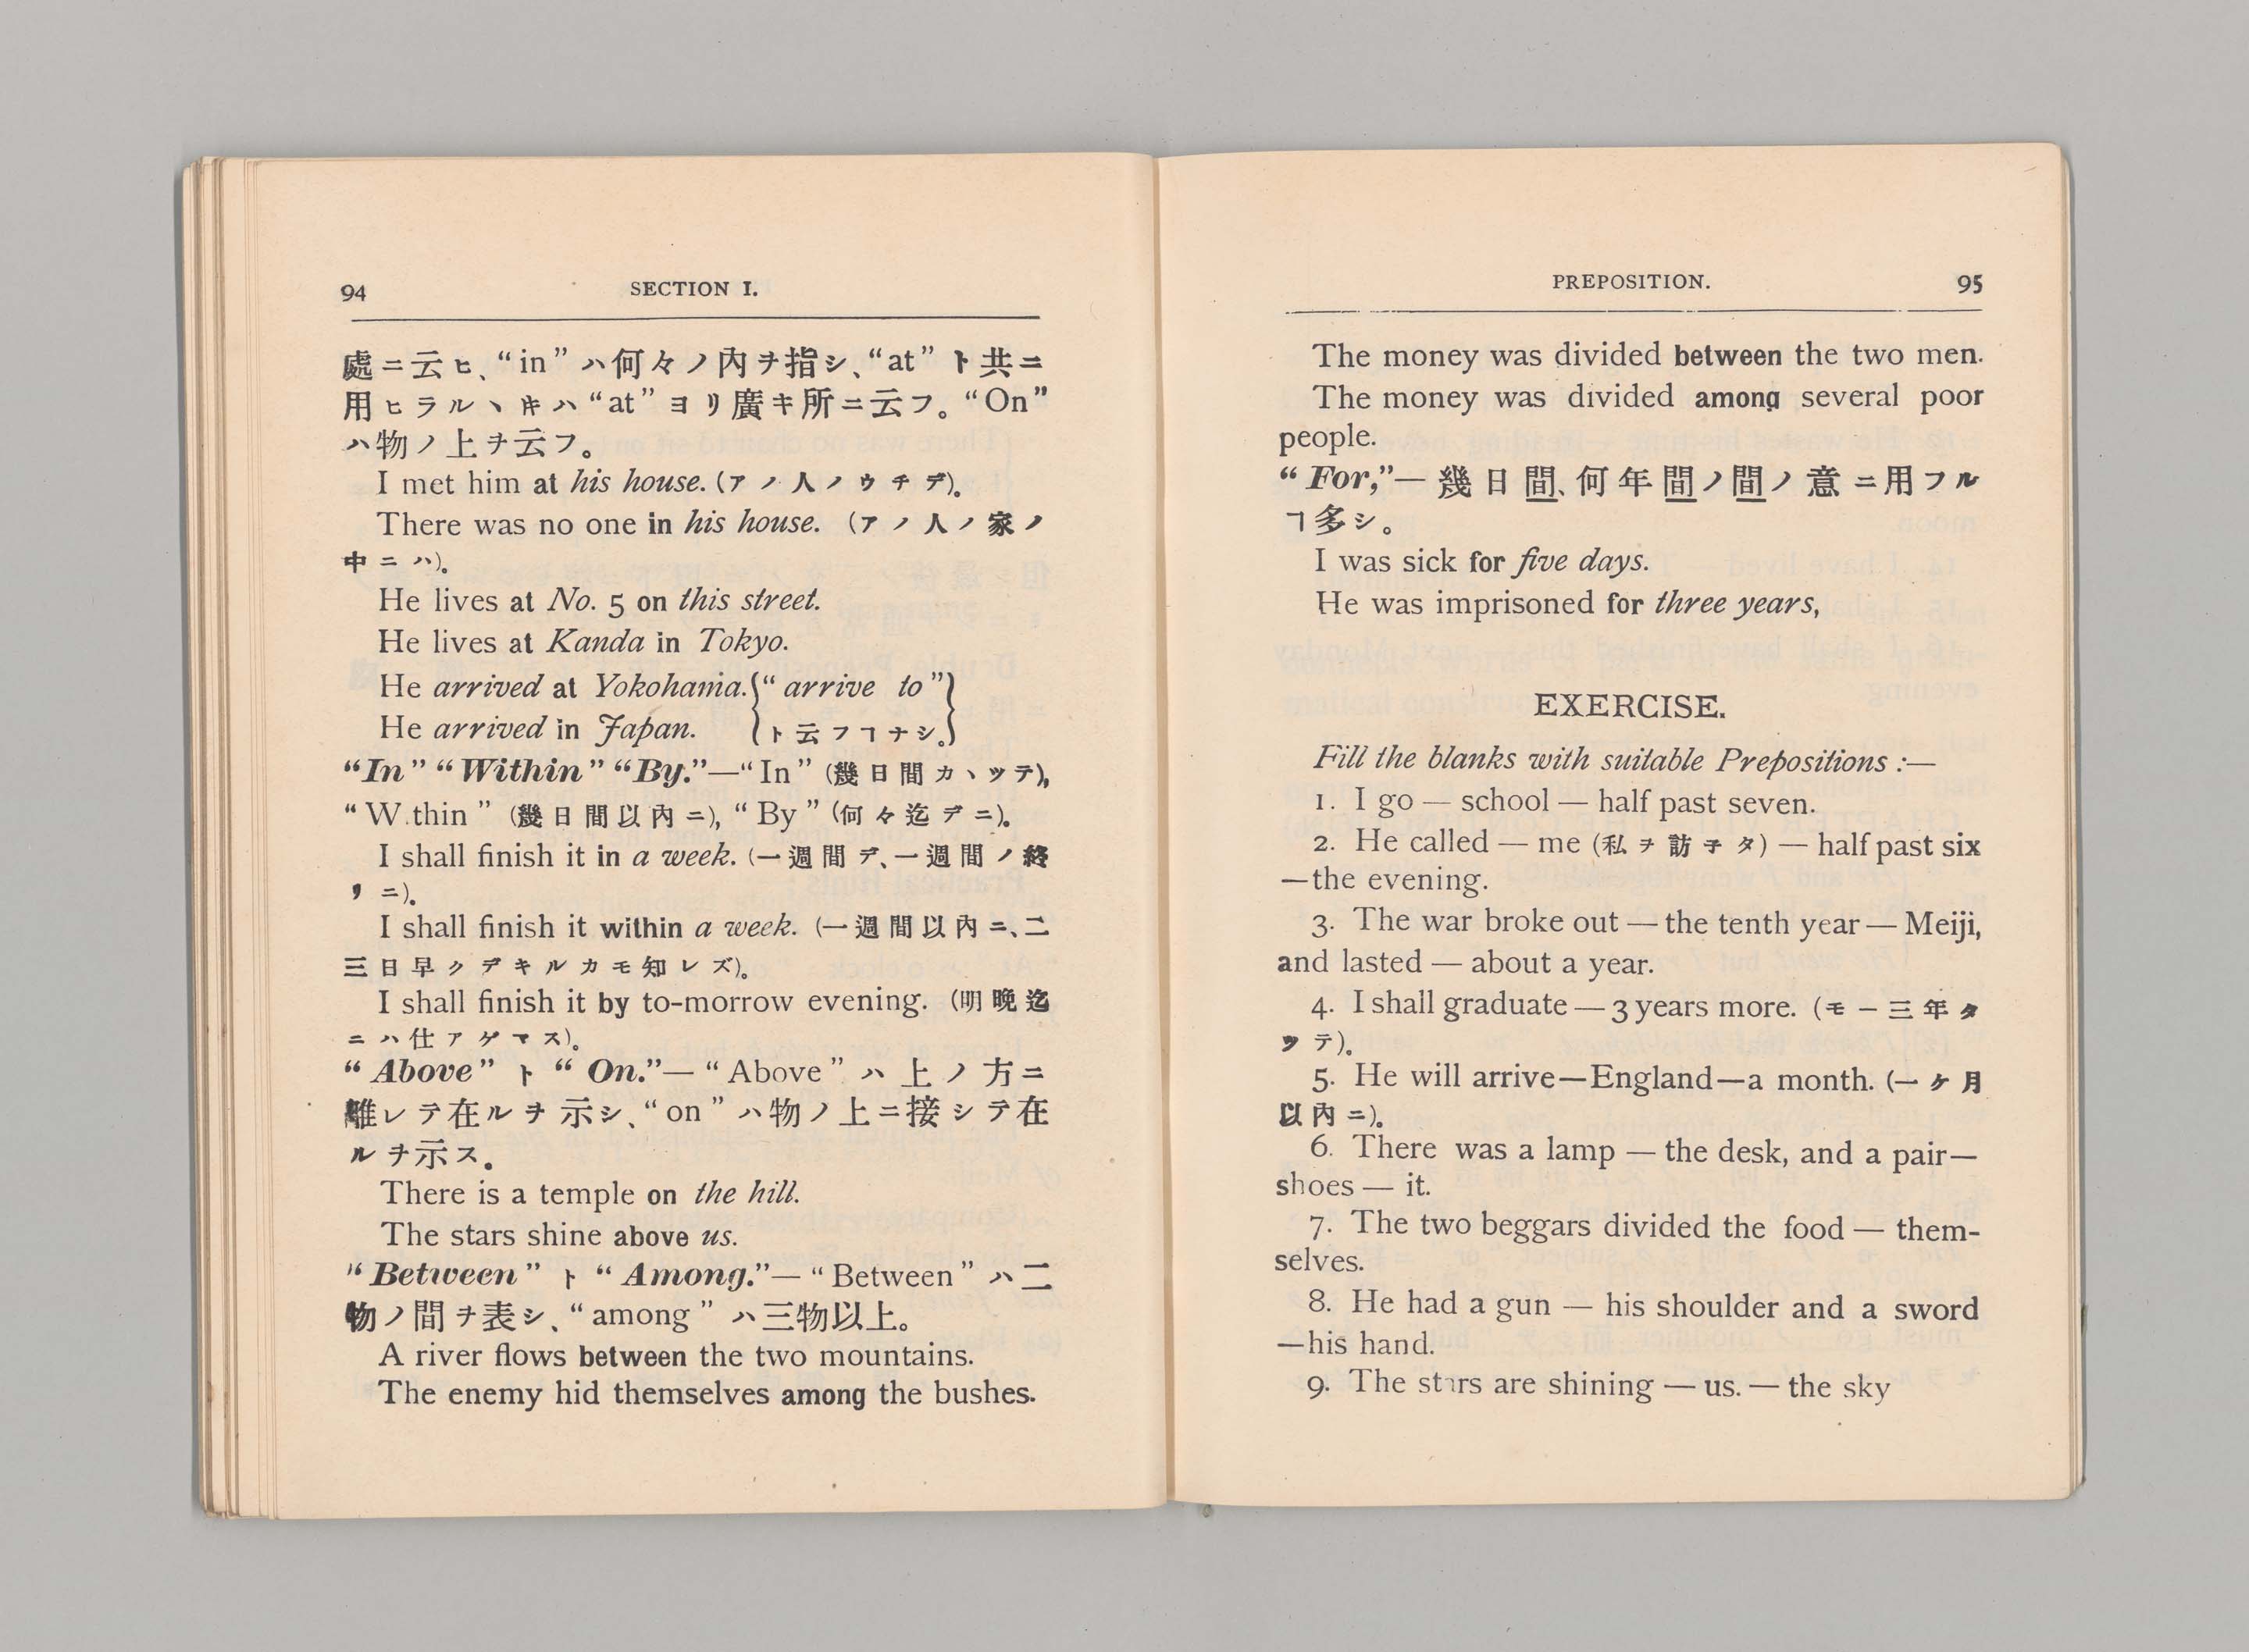 94 SECTION I.
處ニ云ヒ、“in” ハ何々ノ內ヲ指シ、“at” ト共ニ
用ヒラルヽキハ “at” ヨリ廣キ所ニ云フ。“On”
ハ物ノ上ヲ云フ。
I met him at his house. (アノ人ノウチデ)。
There was no one in his house. (アノ人ノ家ノ
中ニハ)。
He lives at No. 5 on this street.
He lives at Kanda in Tokyo.
He arrived at Yokohama. {“arrive to”}
He arrived in Japan. {ト云フヿナシ。}
“In” “Within” “By.”—“In” (幾日間カヽツテ),
“W.thin” (幾日間以內ニ), “By” (何々迄デニ)。
I shall finish it in a week. (一週間デ、一週間ノ終
リニ)。
I shall finish it within a week. (一週間以內ニ、二
三日早クデキルカモ知レズ)。
I shall finish it by to-morrow evening. (明晚迄
ニハ仕アゲマス)。
“Above” ト “On.”— “Above” ハ上ノ方ニ
離レテ在ルヲ示シ、“on” ハ物ノ上ニ接シテ在
ルヲ示ス。
There is a temple on the hill.
The stars shine above us.
“Between” ト “Among.”— “Between” ハ二
物ノ間ヲ表シ、“among” ハ三物以上。
A river flows between the two mountains.
The enemy hid themselves among the bushes.
PREPOSITION. 95
The money was divided between the two men.
The money was divided among several poor
people.
“For,”— 幾日間、何年間ノ間ノ意ニ用フル
ヿ多シ。
I was sick for five days.
He was imprisoned for three years,
EXERCISE.
Fill the blanks with suitable Prepositions :—
1. I go — school — half past seven.
2. He called — me (私ヲ訪子タ) — half past six
—the evening.
3. The war broke out — the tenth year — Meiji,
and lasted — about a year.
4. I shall graduate — 3 years more. (モー三年タ
ツテ)。
5. He will arrive—England—a month. (一ケ月
以內ニ)。
6. There was a lamp — the desk, and a pair—
shoes — it.
7. The two beggars divided the food — them-
selves.
8. He had a gun — his shoulder and a sword
—his hand.
9. The stars are shining — us. — the sky